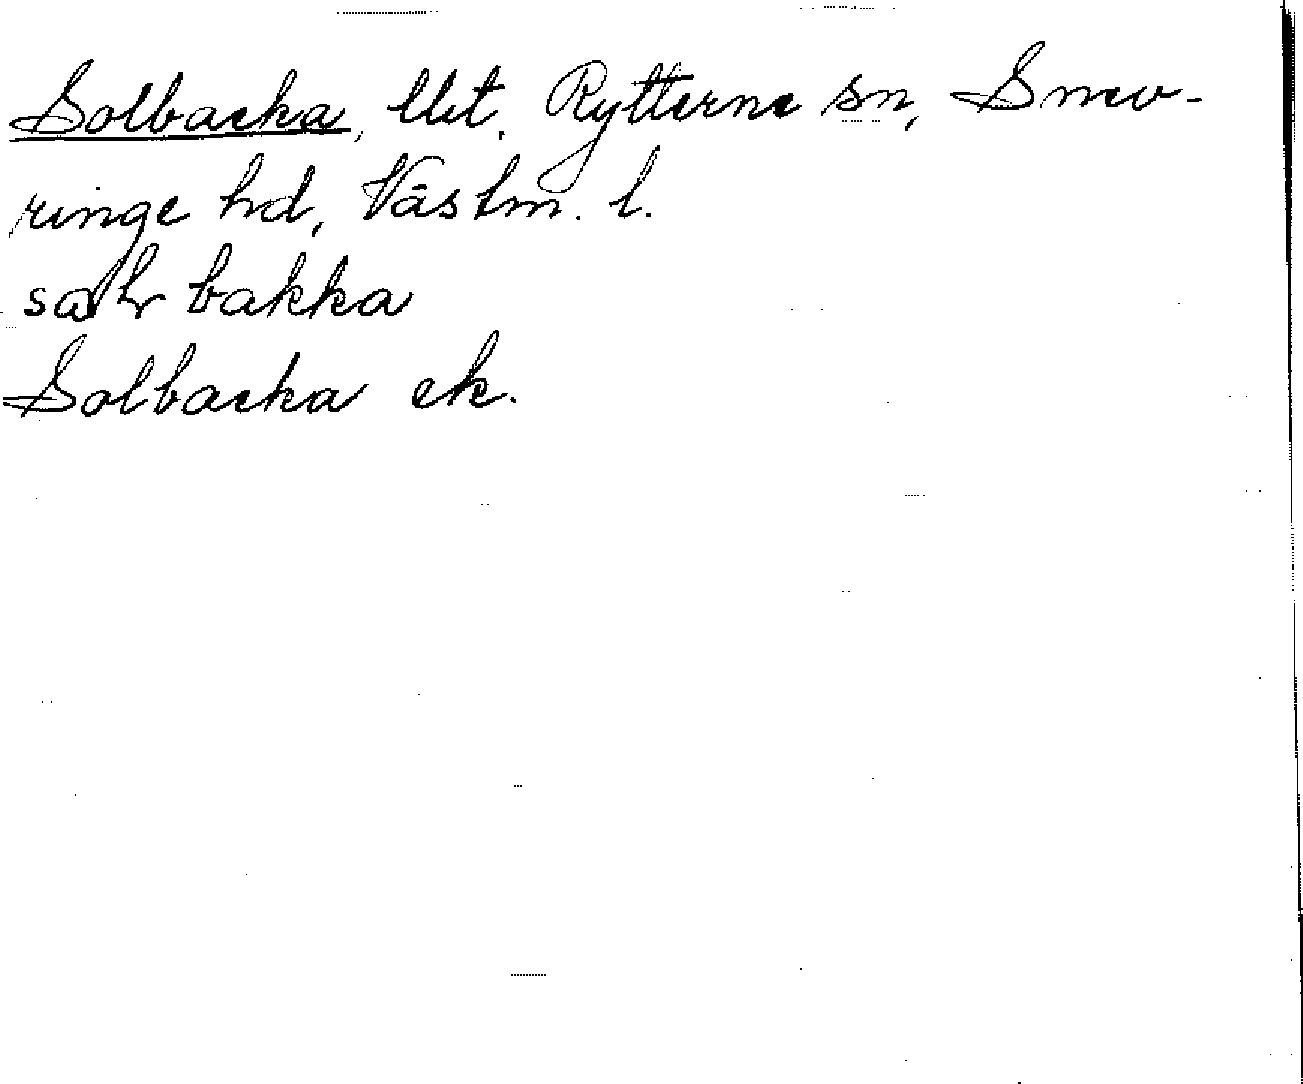 Solbacka, lht, Rytterne sn, Snev-
ringe hd, Västm. l.
bakka
Solbacka ek.